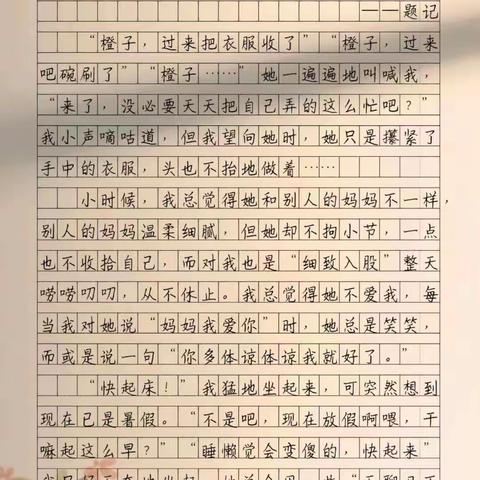 ——题记
“橙子，过来把衣服收了”“橙子，过来
吧碗刷了”“橙子……”她一遍遍地叫喊我，
“来了，没必要天天把自己弄的这么忙吧？”
我小声嘀咕道，但我望向她时，她只是攥紧了
手中的衣服，头也不抬地做着……
小时候，我总觉得她和别人的妈妈不一样，
别人的妈妈温柔细腻，但她却不拘小节，一点
也不收拾自己，而对我也是“细致入股”整天
唠唠叨叨，从不休止。我总觉得她不爱我，每
当我对她说“妈妈我爱你”时，她总是笑笑，
而或是说一句“你多体谅体谅我就好了。”
“快起床！”我猛地坐起来，可突然想到
现在已是暑假。“不是吧，现在放假啊喂，干
嘛起这么早？”“睡懒觉会变傻的，快起来”